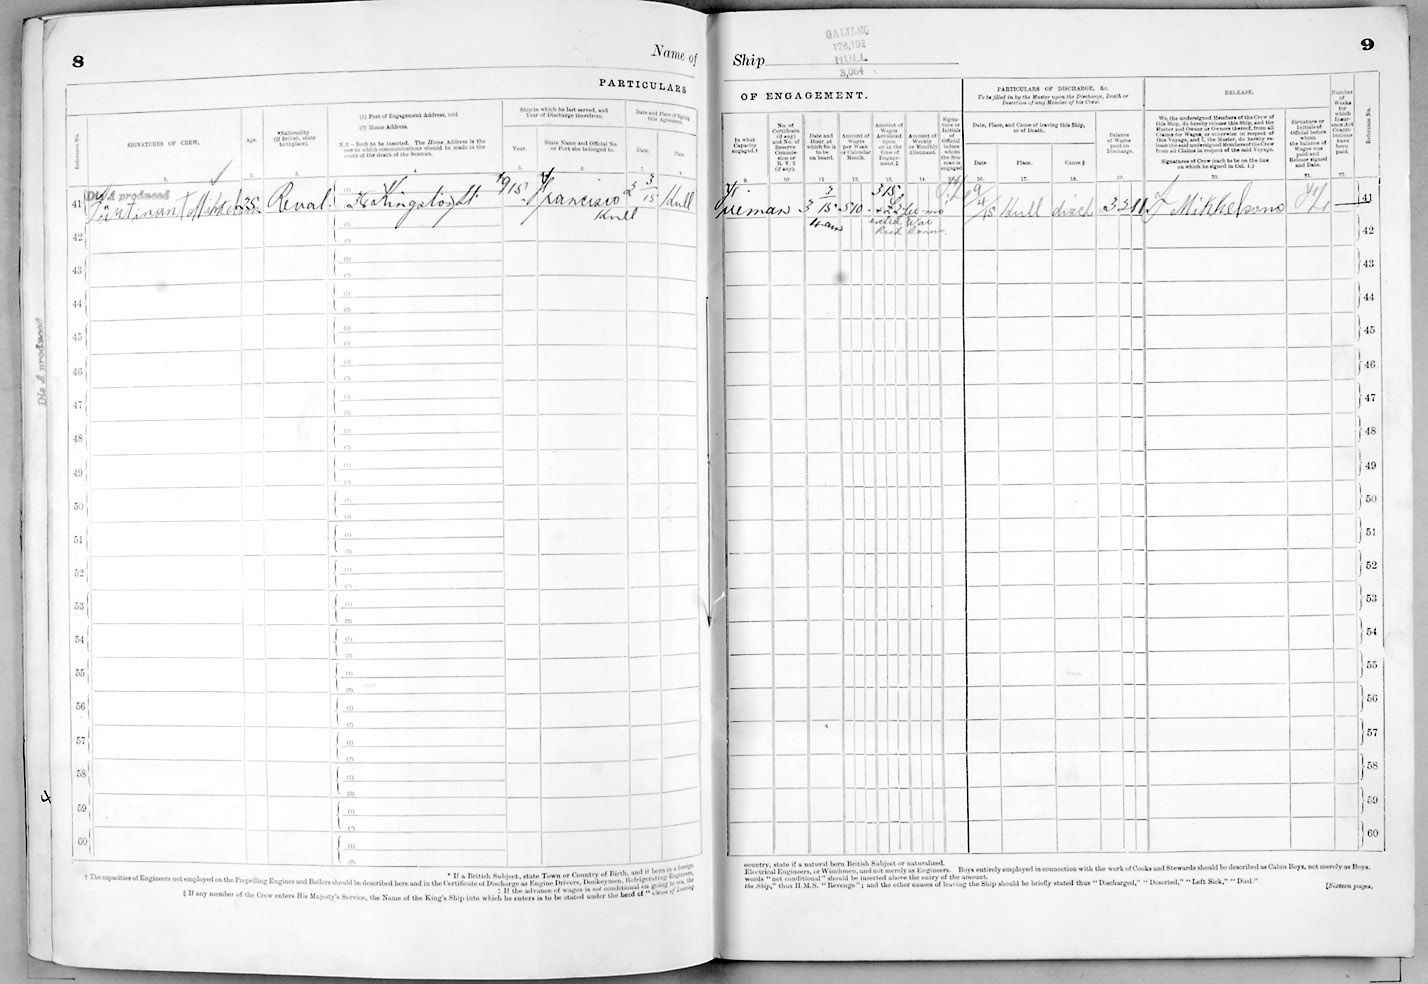 8
Name of
PARTICULARS
Reference No.
SIGNATURES OF CREW.
Age.
*Nationality
(If British, state
birthplace).
(1) Port of Engagement Address, and
(2) Home Address.
N.B.—Both to be inserted. The Home Address is the
one to which communications should be made in the
event of the death of the Seaman.
Ship in which he last served, and
Year of Discharge therefrom.
Year.
State Name and Official No.
or Port she belonged to.
Date and Place of Signing
this Agreement.
Date.
Place
1. 2. 3. 4. 5. 6. 7. 8.
Dis A produced
41
35
Reval
Kingston St
1915
Francisco
Hull
3/3 15
Hull
42
43
44
45
46
47
48
49
50
51
52
53
54
55
56
57
58
59
60
Dis A produced
4
* If a British Subject, state Town or Country of Birth, and if born in a foreign
† The capacities of Engineers not employed on the Propelling Engines and Boilers should be described here and in the Certificate of Discharge as Engine Drivers, Donkeymen, Refrigerating Engineers,
‡ If the advance of wages is not conditional on going to sea, the
§ If any member of the Crew enters His Majesty's Service, the Name of the King's Ship into which he enters is to be stated under the head of "Cause of Leaving
9
GALILEO
128,102
HULL
3,064
Ship
OF ENGAGEMENT.
PARTICULARS OF DISCHARGE, &c.
To be filled in by the Master upon the Discharge, Death or
Desertion of any Member of his Crew.
RELEASE.
In what
Capacity
engaged.†
No. of
Certificate
(if any)
and No. of
Reserve
Commis-
sion or
R. V. 2
(if any).
Date and
Hour at
which he is
to be
on board.
Amount of
Wages
per Week
or Calendar
Month.
Amount of
Wages
Advanced
upon or
at the
time of
Engage-
ment.‡
Amount of
Weekly
or Monthly
Allotment.
Signa-
ture or
Initials
of
Official
before
whom
the Sea-
man is
engaged
Date, Place, and Cause of leaving this Ship,
or of Death.
Date.
Place.
Cause.§
Balance
of Wages
paid on
Discharge.
We, the undersigned Members of the Crew of
this Ship, do hereby release this Ship, and the
Master and Owner or Owners thereof, from all
Claims for Wages, or otherwise in respect of
this Voyage, and I, the Master, do hereby re-
lease the said undersigned Members of the Crew
from all Claims in respect of the said Voyage.
Signatures of Crew (each to be on the line
on which he signed in Col. 1.)
Signature or
Initials of
Official before
whom
the balance of
Wages was
paid and
Release signed
and Date.
Number
of
Weeks
for
which
Insur-
ance Act
Contri-
butions
have
been
paid.
Reference No.
9. 10. 11. 12. 13. 14. 15. 16. 17. 18. 19. 20. 21. 22.
Fireman
3/3 15
4 am
5 10
3 15
Hull
disch
3 3 11
Mikkelsons
41
42
43
44
45
46
47
48
49
50
51
52
53
54
55
56
57
58
59
60
country, state if a natural born British Subject or naturalized.
Electrical Engineers, or Winchmen, and not merely as Engineers. Boys entirely employed in connection with the work of Cooks and Stewards should be described as Cabin Boys, not merely as Boys.
words "not conditional" should be inserted above the entry of the amount.
the Ship," thus H.M.S. "Revenge"; and the other causes of leaving the Ship should be briefly stated thus "Discharged," "Deserted," "Left Sick," "Died."
[Sixteen pages.